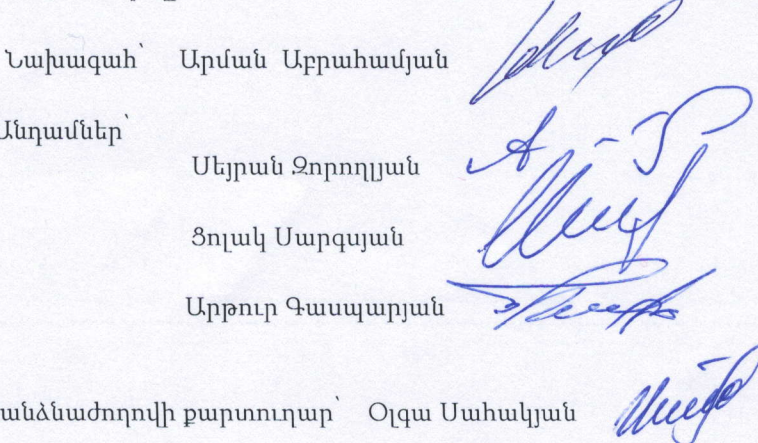 Նախագահ՝ Արման Աբրահամյան
Անդամներ՝
Սեյրան Զորողլյան
Ցոլակ Սարգսյան
Արթուր Գասպարյան
անձնաժողովի քարտուղար՝ Օլգա Սահակյան